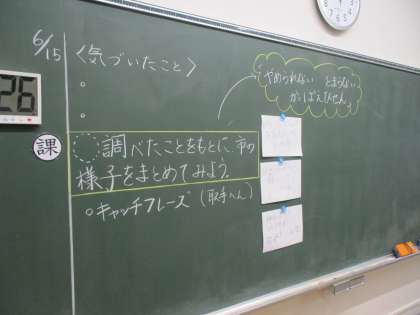 6/15
〈気づいたこと〉
26
課
調べたことをもとに、市の
様子をまとめてみよう。
○キャッチフレーズ(取手へん)
「やめられない とまらない
かっぱえびせん」